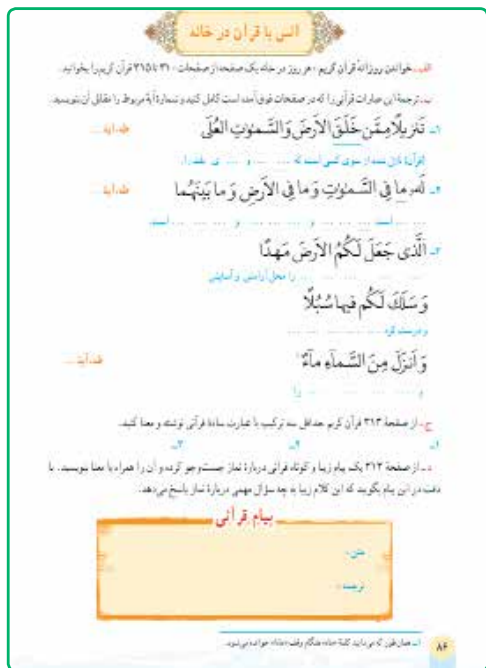 انس با قرآن در خانه
الف ـ خواندن روزانهٔ قرآن کریم : هر روز در خانه یک صفحه از صفحات ۳۱۰ تا ۳۱۵ قرآن کریم را بخوانید.
ب ـ ترجمهٔ این عبارات قرآنی را که در صفحات فوق آمده است کامل کنید و شمارهٔ آیهٔ مربوط را مقابل آن بنویسید.
۱ـ تَنزیلًا مِمَّن خَلَقَ الاَرضَ وَ السَّمٰوٰتِ العُلَی طه، آیهٔ ...
(قرآن) نازل شده از سوی کسی است که ... و ... ی بلند را.
۲ـ لَهُ ما فِی السَّمٰوٰتِ وَ ما فِی الاَرضِ وَ ما بَینَهُما طه، آیهٔ ...
... است ... و ... و ... است.
۳ـ اَلَّذی جَعَلَ لَکُمُ الاَرضَ مَهدًا
... را محل آرامش و آسایش
وَ سَلَکَ لَکُم فیها سُبُلًا
و درست کرد ...
وَ اَنزَلَ مِنَ السَّماءِ ماءً طه، آیهٔ ...
و ... را
ج ـ از صفحهٔ ۳۱۳ قرآن کریم حداقل سه ترکیب یا عبارت سادهٔ قرآنی نوشته و معنا کنید.
۱ـ ۲ـ ۳ـ
د ـ از صفحهٔ ۳۱۲ یک پیام زیبا و کوتاه قرآنی دربارهٔ نماز جست‌وجو کرده و آن را همراه با معنا بنویسید. با
دقت در این پیام بگویید که این کلام زیبا به چه سؤال مهمی دربارهٔ نماز پاسخ می‌دهد.
پیام قرآنی
متن :
ترجمه :
۱ـ همان‌طور که می‌دانید کلمهٔ «ماءً» هنگام وقف «ماءا» خوانده می‌شود.
۸۶